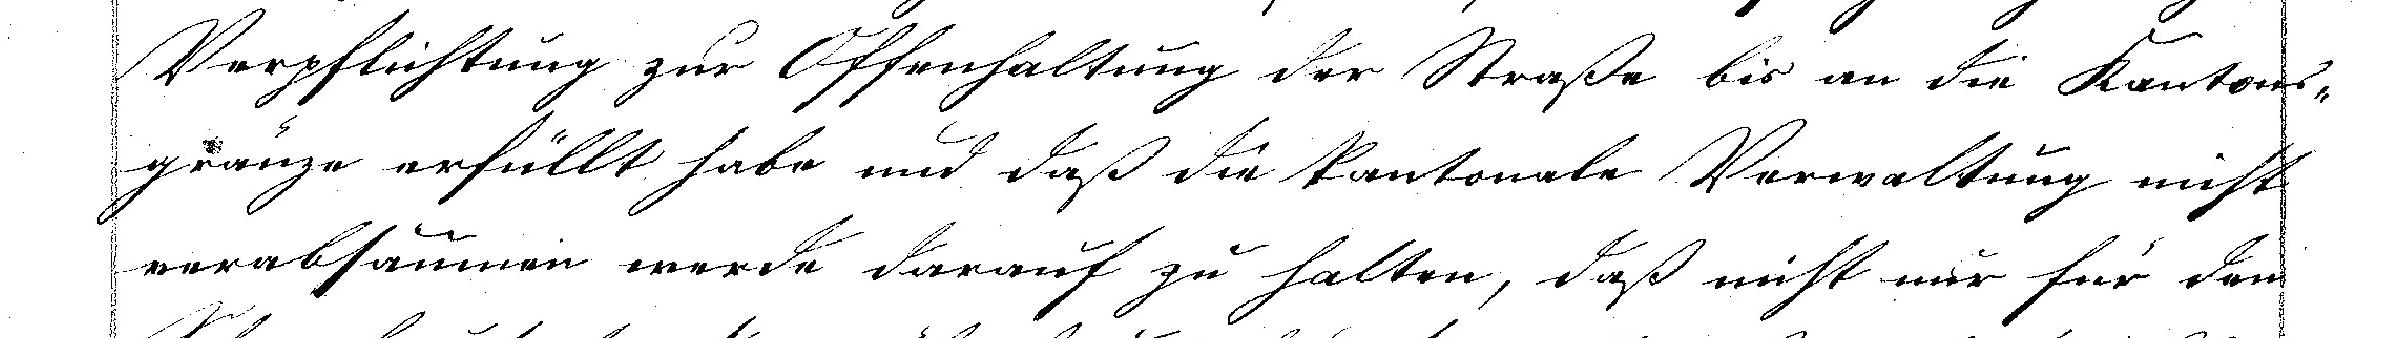 Verpflichtung zur Offenhaltung der Straße bis an die Kantons„
gränze erfüllt habe und daß die kantonale Verwaltung nicht
verabsäumen werde darauf zu halten, daß nicht nur für den